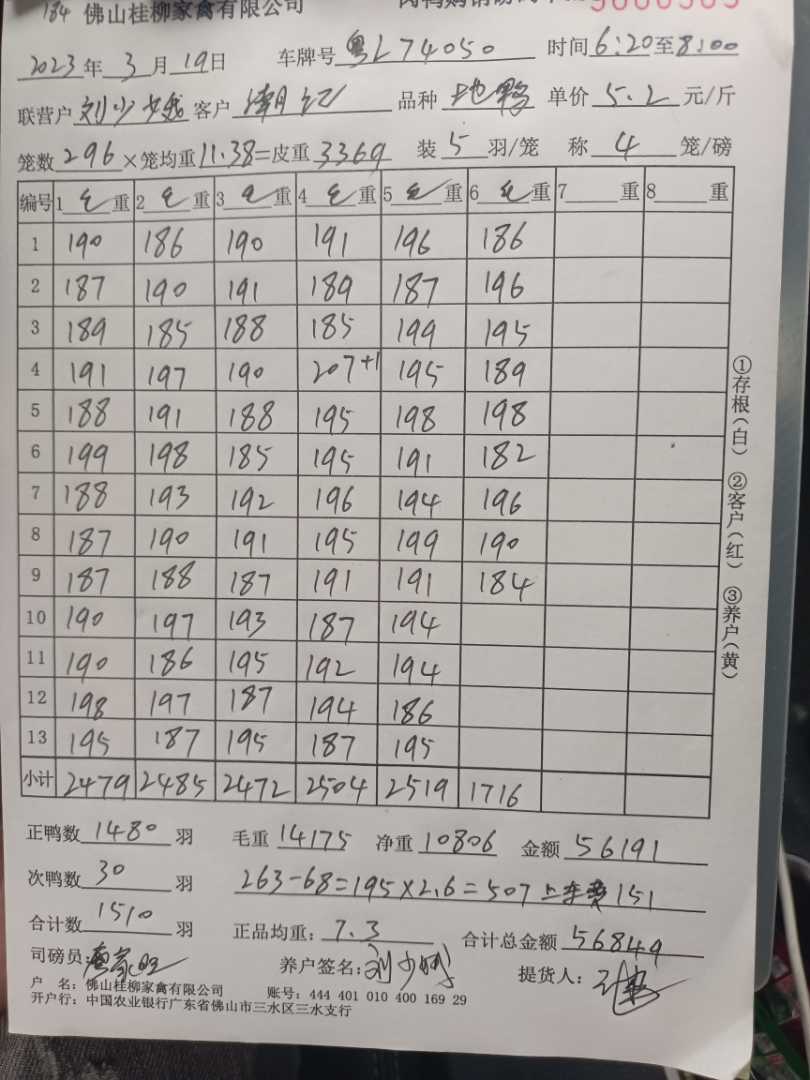 184 佛山桂柳家禽有限公司
2023年3月19日 车牌号粤L74050 时间6:20至8:00
联营户刘少娥 客户潮记 品种土鸭 单价5.2元/斤
笼数296×笼均重11.38=皮重3369 装5羽/笼 称4笼/磅
编号 1毛重 2毛重 3毛重 4毛重 5毛重 6毛重 7重 8重
1 190 186 190 191 196 186
2 187 190 191 189 187 196
3 189 185 188 185 199 195
4 191 197 190 207+1 195 189
5 188 191 188 195 198 198
6 199 198 185 195 191 182
7 188 193 192 196 194 196
8 187 190 191 195 199 190
9 187 188 187 191 191 184
10 190 197 193 187 194
11 190 186 195 192 194
12 198 197 187 194 186
13 195 187 195 187 195
小计 2479 2485 2472 2504 2519 1716
①存根(白) ②客户(红) ③养户(黄)
正鸭数1480羽 毛重14175 净重10806 金额56191
次鸭数30羽 263-68=195×2.6=507 上车费151
合计数1510羽 正品均重:7.3 合计总金额56849
司磅员: 养户签名:刘少娥 提货人:
户 名:佛山桂柳家禽有限公司 账号:444 401 010 400 169 29
开户行:中国农业银行广东省佛山市三水区三水支行